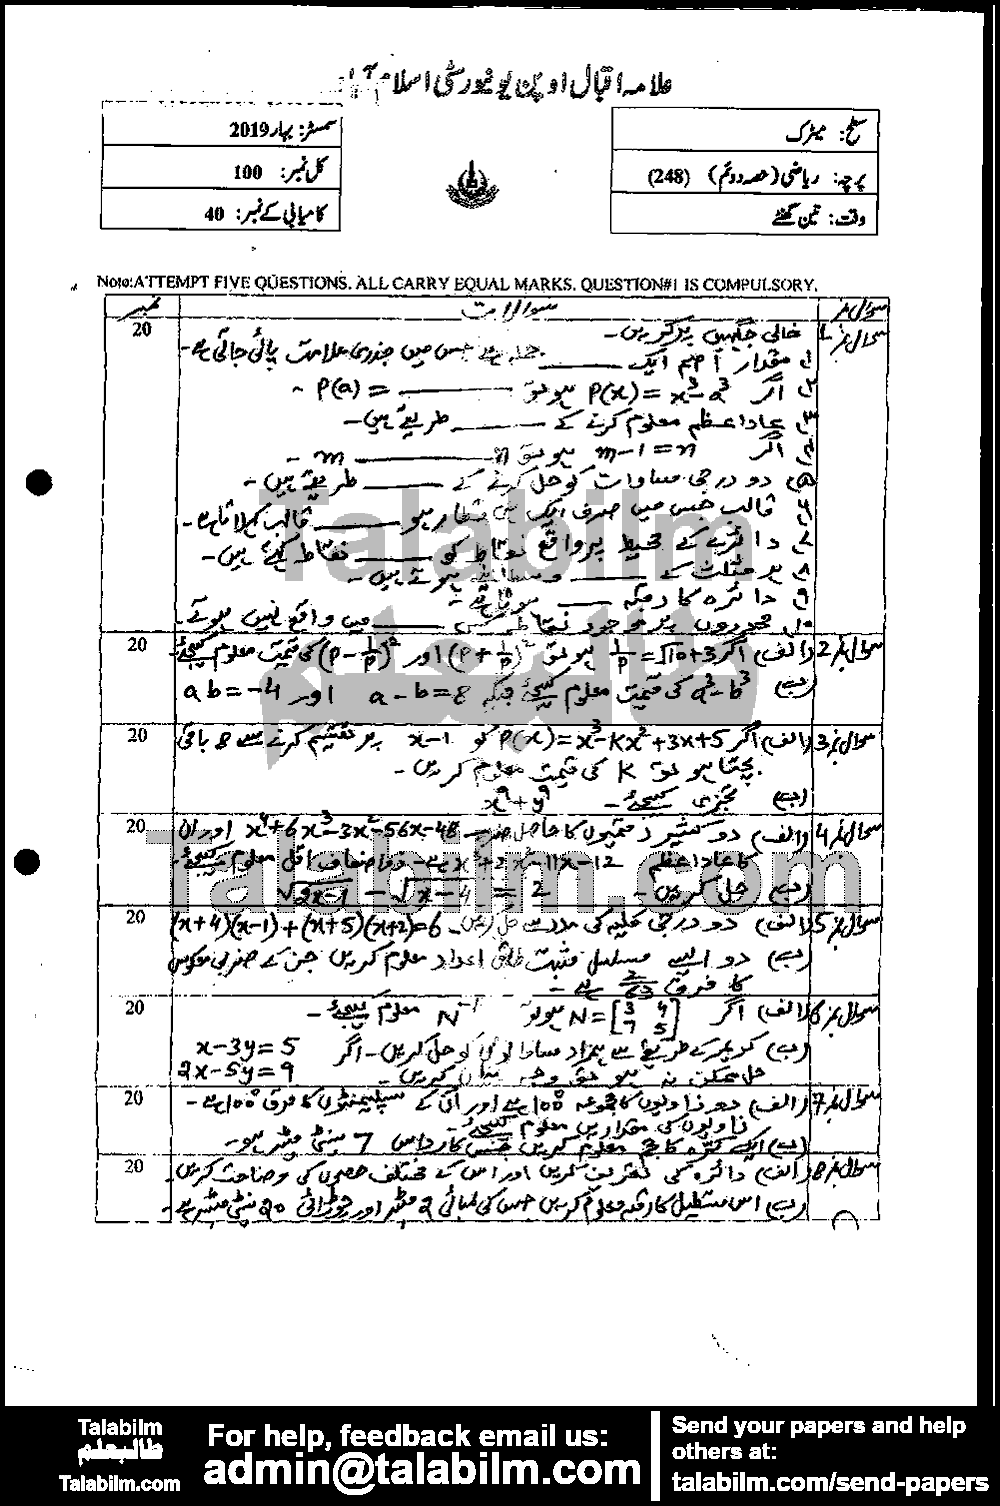 علامہ اقبال اوپن یونیورسٹی اسلام آباد
سطح: میٹرک
پرچہ: ریاضی (حصہ دوئم) (248)
وقت: تین گھنٹے
سمسٹر: بہار 2019
کل نمبر: 100
کامیابی کے نمبر: 40
Note:ATTEMPT FIVE QUESTIONS. ALL CARRY EQUAL MARKS. QUESTION#1 IS COMPULSORY.
سوال نمبر سوالات نمبر
سوال نمبر 1 خالی جگہیں پر کریں۔ 20
۱۔ مقدار اصم ایک ______ جملہ ہے جس میں جذری علامت پائی جاتی ہے۔
۲۔ اگر P(x) = x³-a³ ہو تو ______ = P(a) ۔
۳۔ عاداعظم معلوم کرنے کے ______ طریقے ہیں۔
۴۔ اگر m-1=n ہو تو n ______ m ۔
۵۔ دو درجی مساوات کو حل کرنے کے ______ طریقے ہیں۔
۶۔ قالب جس میں صرف ایک ہی قطار ہو ______ قالب کہلاتا ہے۔
۷۔ دائرے کے محیط پر واقع نقاط کو ______ نقاط کہتے ہیں۔
۸۔ ہر مثلث کے ______ وسطانیے ہوتے ہیں۔
۹۔ دائرہ کا رقبہ ______ ہوتا ہے۔
۱۰۔ محوروں پر موجود نقاط کسی ______ میں واقع نہیں ہوتے۔
سوال نمبر 2 (الف) اگر 1/p = √10+3 ہو تو (p+1/p)² اور (p-1/p)² کی قیمت معلوم کیجئے۔ 20
(ب) a³-b³ کی قیمت معلوم کیجئے جبکہ a-b=8 اور ab=-4
سوال نمبر 3 (الف) اگر P(x)=x³-Kx²+3x+5 کو x-1 پر تقسیم کرنے سے 8 باقی 20
بچتا ہو تو K کی قیمت معلوم کریں۔
(ب) تجزی کیجئے۔ x⁹+y⁹
سوال نمبر 4 (الف) دو کثیر رقمیوں کا حاصل ضرب x⁴+6x³-3x²-56x-48 اور ان 20
کا عاداعظم x³+2x²-11x-12 ہے۔ ذواضعاف اقل معلوم کیجئے۔
(ب) حل کریں۔ √2x-1 - √x-4 = 2
سوال نمبر 5 (الف) دو درجی کلیہ کی مدد سے حل کریں۔ (x+4)(x-1)+(x+5)(x+2)=6 20
(ب) دو ایسے مسلسل مثبت طاق اعداد معلوم کریں جن کے ضربی معکوس
کا فرق 2/63 ہے۔
سوال نمبر 6 (الف) اگر N=[3 4 7 5] ہو تو N⁻¹ معلوم کیجئے۔ 20
(ب) کریمر کے طریقے سے ہمزاد مساواتوں کو حل کریں۔ اگر x-3y=5
حل ممکن نہ ہو تو وجہ بیان کریں۔ 2x-5y=9
سوال نمبر 7 (الف) دو زاویوں کا مجموعہ 100° ہے اور ان کے سپلیمنٹوں کا فرق 100° ہے۔ 20
زاویوں کی مقداریں معلوم کیجئے۔
(ب) ایک کرہ کا حجم معلوم کریں جس کا رداس 7 سینٹی میٹر ہو۔
سوال نمبر 8 (الف) دائرہ کی تعریف کریں اور اس کے مختلف حصوں کی وضاحت کریں۔ 20
(ب) اس مستطیل کا رقبہ معلوم کریں جس کی لمبائی 2 میٹر اور چوڑائی 20 سینٹی میٹر ہے۔
Talabilm
طالبعلم
Talabilm.com
Talabilm
طالبعلم
Talabilm.com
For help, feedback email us:
admin@talabilm.com
Send your papers and help
others at:
talabilm.com/send-papers